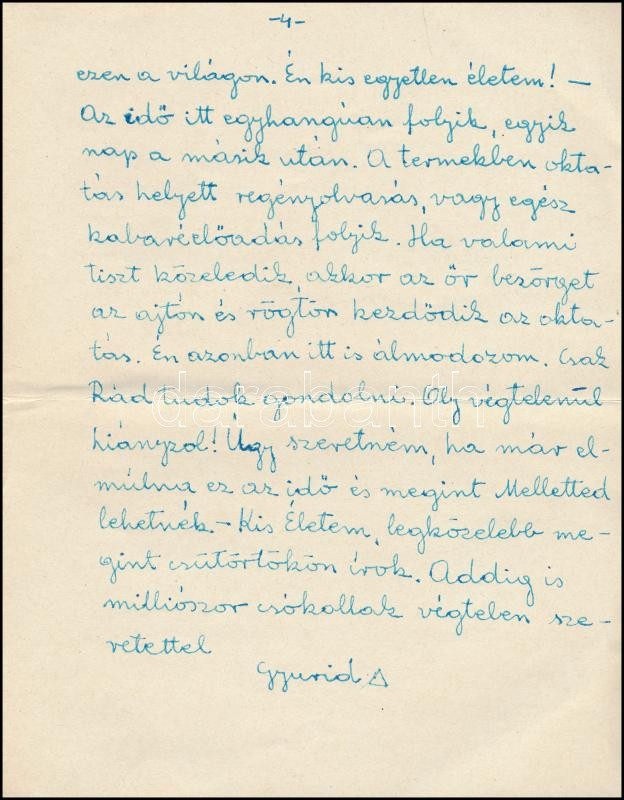 -4-
ezen a világon. Én kis egyetlen életem! —
Az idő itt egyhangúan folyik, egyik
nap a másik után. A termekben okta-
tás helyett regényolvasás, vagy egész
kabaréelőadás folyik. Ha valami
tiszt közeledik, akkor az őr bezörget
az ajtón és rögtön kezdődik az okta-
tás. Én azonban itt is álmodozom. Csak
Rád tudok gondolni. Oly végtelenül
hiányzol! Úgy szeretném, ha már el-
múlna ez az idő és megint Melletted
lehetnék. - Kis Életem, legközelebb me-
gint csütörtökön írok. Addig is
milliószor csókollak végtelen sze-
retettel
Gyurid
darabanth